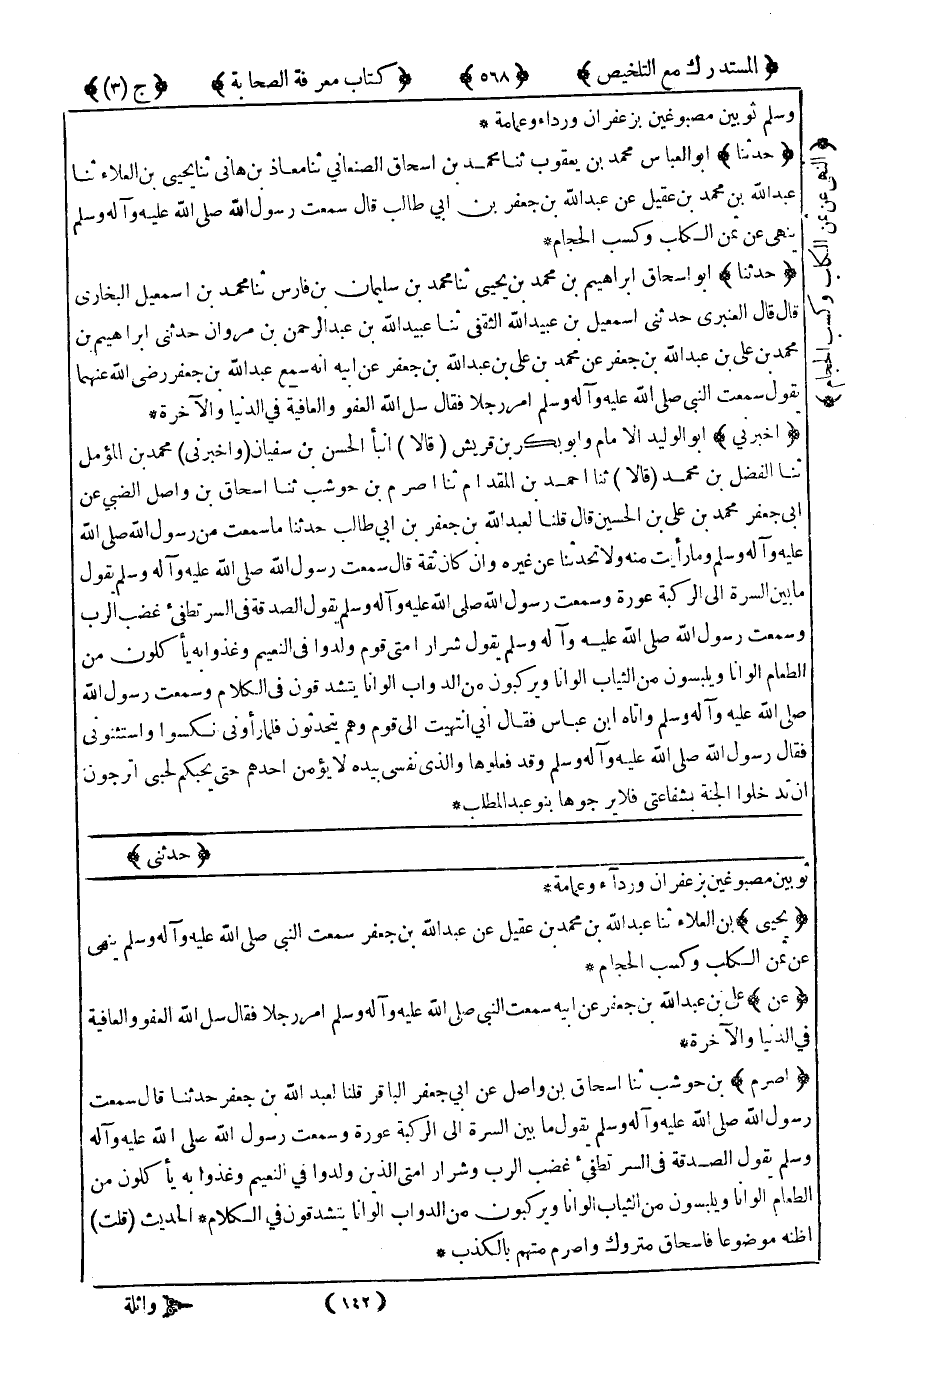 ﴿ المستدرك مع التلخيص ﴾ ﴿ ٥٦٨ ﴾ ﴿ كتاب معرفة الصحابة ﴾ ﴿ ج (٣) ﴾
وسلم ثوبين مصبوغين بزعفران ورداء وعمامة *
﴿ حدثنا ﴾ ابو العباس محمد بن يعقوب ثنا محمد بن اسحاق الصنعاني ثنا معاذ بن هانى ثنا يحيى بن العلاء ثنا
عبدالله بن محمد بن عقيل عن عبدالله بن جعفر بن ابي طالب قال سمعت رسول الله صلى الله عليه وآله وسلم
ينهى عن ثمن الكلب وكسب الحجام *
﴿ النهى عن ثمن الكلب وكسب الحجام ﴾
﴿ حدثنا ﴾ ابو اسحاق ابراهيم بن محمد بن يحيى ثنا محمد بن سليمان بن فارس ثنا محمد بن اسمعيل البخارى
قال قال العنبرى حدثنى اسمعيل بن عبيدالله الثقفى ثنا عبيدالله بن عبدالرحمن بن مروان حدثنى ابراهيم بن
محمد بن على بن عبدالله بن جعفر عن محمد بن على بن عبدالله بن جعفر عن ابيه انه سمع عبدالله بن جعفر رضى الله عنهما
يقول سمعت النبى صلى الله عليه وآله وسلم امر رجلا فقال سل الله العفو والعافية في الدنيا والآخرة *
﴿ اخبرني ﴾ ابو الوليد الامام وابو بكر بن قريش ( قالا ) انبأ الحسن بن سفيان (واخبرنى) محمد بن المؤمل
ثنا الفضل بن محمد ( قالا ) ثنا احمد بن المقدام ثنا اصرم بن حوشب ثنا اسحاق بن واصل الضبي عن
ابى جعفر محمد بن على بن الحسين قال قلنا لعبدالله بن جعفر بن ابي طالب حدثنا ما سمعت من رسول الله صلى الله
عليه وآله وسلم وما رأيت منه ولا تحدثنا عن غيره وان كان ثقة قال سمعت رسول الله صلى الله عليه وآله وسلم يقول
ما بين السرة الى الركبة عورة وسمعت رسول الله صلى الله عليه وآله وسلم يقول الصدقة فى السر تطفئ غضب الرب
وسمعت رسول الله صلى الله عليه وآله وسلم يقول شرار امتى قوم ولدوا فى النعيم وغذوا به يأكلون من
الطعام الوانا ويلبسون من الثياب الوانا ويركبون من الدواب الوانا يتشدقون فى الكلام وسمعت رسول الله
صلى الله عليه وآله وسلم واتاه ابن عباس فقال اني انتهيت الى قوم وهم يتحدثون فلما رأونى نكسوا واستثنونى
فقال رسول الله صلى الله عليه وآله وسلم وقد فعلوها والذى نفسى بيده لا يؤمن احدهم حتى يحبكم لحبى أترجون
ان تدخلوا الجنة بشفاعتى فلا يرجوها بنو عبدالمطلب *
﴿ حدثنى ﴾
ثوبين مصبوغين بزعفران ورداء وعمامة *
﴿ يحيى ﴾ بن العلاء ثنا عبدالله بن محمد بن عقيل عن عبدالله بن جعفر سمعت النبى صلى الله عليه وآله وسلم ينهى
عن ثمن الكلب وكسب الحجام *
﴿ عن ﴾ على بن عبدالله بن جعفر عن ابيه سمعت النبى صلى الله عليه وآله وسلم امر رجلا فقال سل الله العفو والعافية
في الدنيا والآخرة *
﴿ اصرم ﴾ بن حوشب ثنا اسحاق بن واصل عن ابي جعفر الباقر قلنا لعبدالله بن جعفر حدثنا قال سمعت
رسول الله صلى الله عليه وآله وسلم يقول ما بين السرة الى الركبة عورة وسمعت رسول الله صلى الله عليه وآله
وسلم يقول الصدقة فى السر تطفئ غضب الرب وشرار امتى الذين ولدوا في النعيم وغذوا به يأكلون من
الطعام الوانا ويلبسون من الثياب الوانا ويركبون من الدواب الوانا يتشدقون في الكلام * الحديث ( قلت )
اظنه موضوعا فاسحاق متروك واصرم متهم بالكذب *
( ١٤٢ ) واثلة